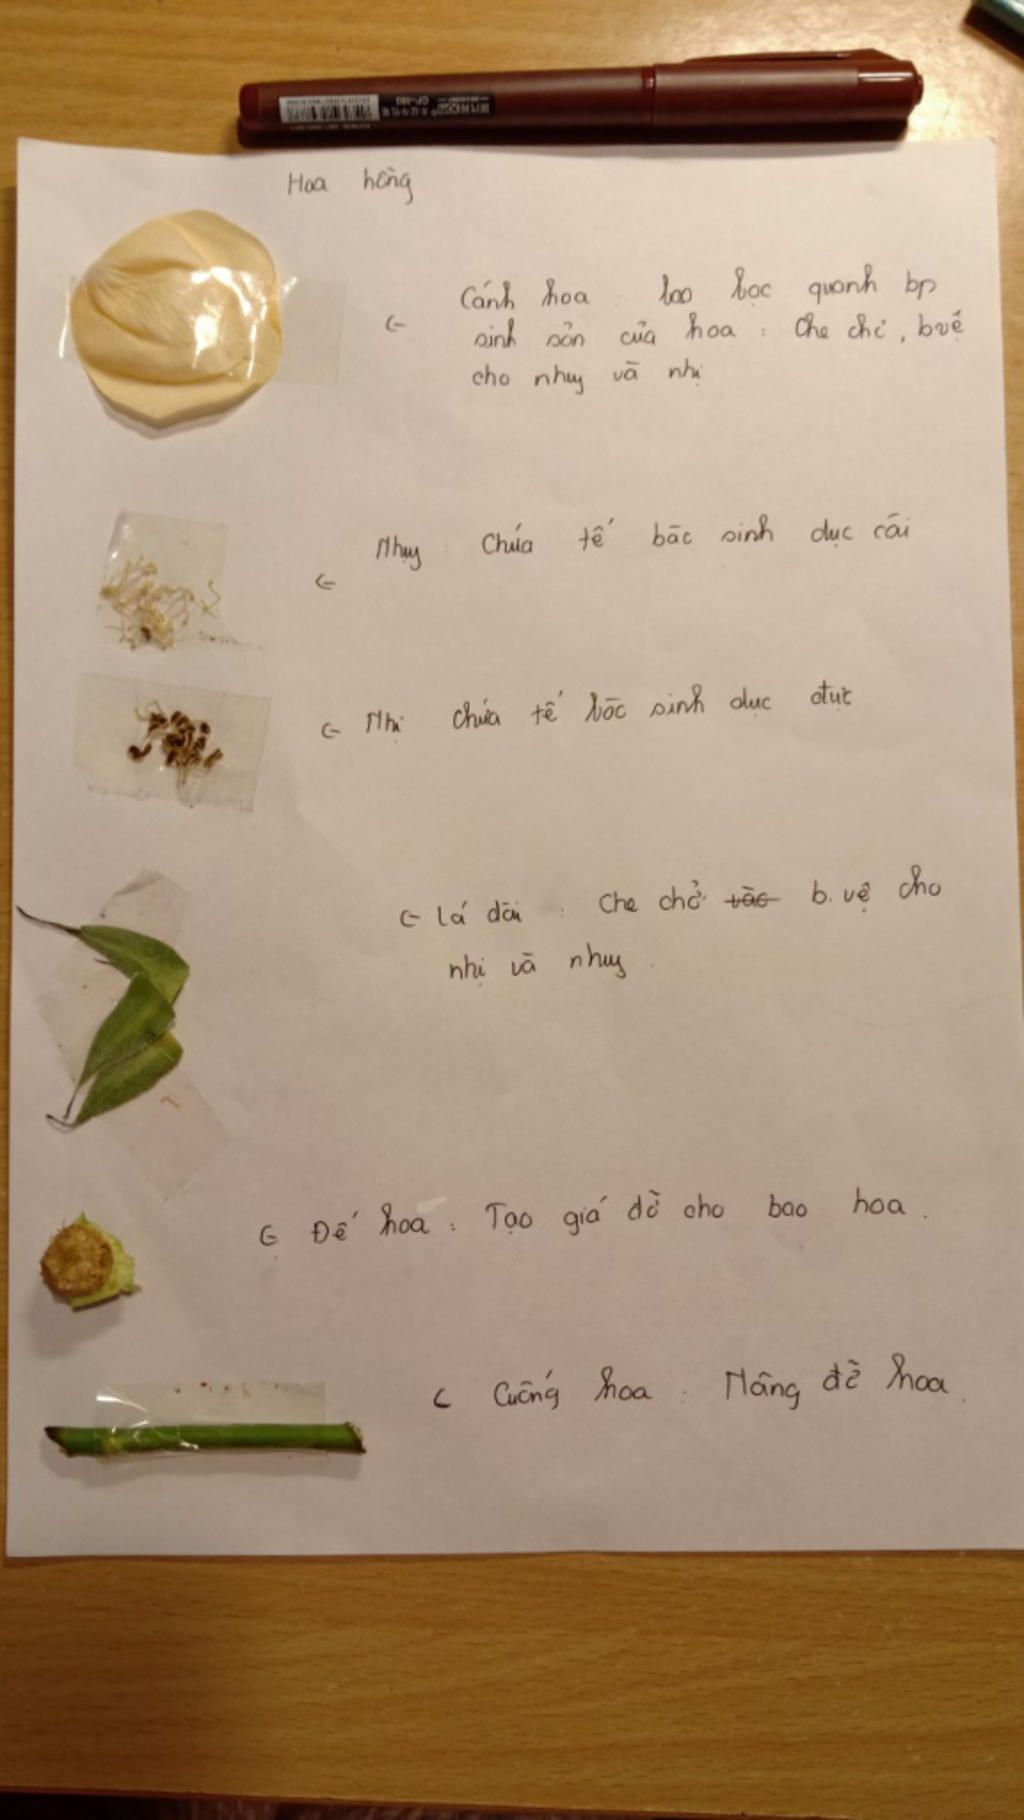 Hoa hồng
Cánh hoa : bao bọc quanh bp
sinh sản của hoa : Che chở, bvệ
cho nhụy và nhị
Nhụy : Chứa tế bào sinh dục cái
Nhị chứa tế bào sinh dục đực
lá đài : Che chở b.vệ cho
nhị và nhụy .
Đế hoa : Tạo giá đỡ cho bao hoa .
Cuống hoa : Nâng đỡ hoa .